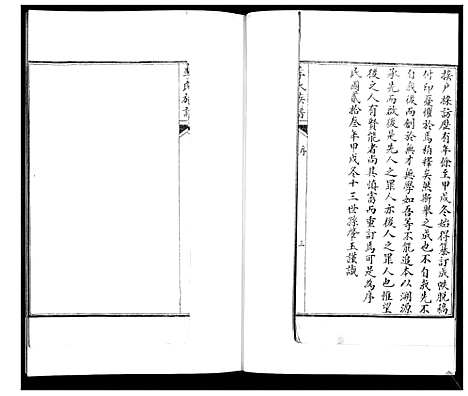 按戶採訪歷有年餘至甲戌冬始得纂訂成帙脫稿
付印憂懼於焉稍釋矣然斯舉之成也不自我先不
自我後而創於無才無學如吾等不能追本以溯源
承先而啟後是先人之罪人亦後人之罪人也惟望
後之人有賢能者尚其慎富而重訂焉可是為序
民國貳拾叁年甲戌冬十三世孫肇玉謹識
氏族譜
序
三